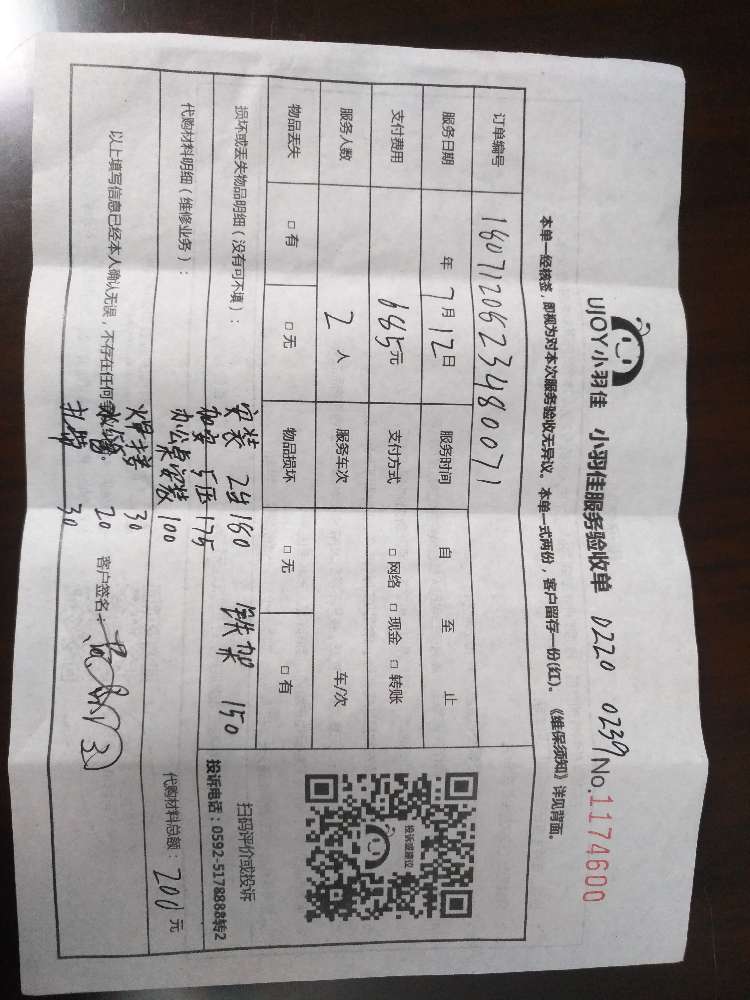 UJOY小羽佳 小羽佳服务验收单 0220 0239 No.1174600
本单一经核签，即视为对本次服务验收无异议。本单一式两份，客户留存一份(红)。《维保须知》详见背面。
订单编号 180712062348007 1
服务日期 年 7月12日 服务时间 自 至 止
支付费用 685元 支付方式 □ 网络 □ 现金 □ 转账
服务人数 2 人 服务车次 车/次
物品丢失 □ 有 □ 无 物品损坏 □ 无 □ 有
投诉或建议
扫码评价或投诉
投诉电话：0592-5178888转2
损坏或丢失物品明细（没有可不填）：
安装 2台 160 铁架 150
加安 5压 175
代购材料明细（维修业务）：
办公桌安装 100
代购材料总额：200元
焊接 30
20
30
以上填写信息已经本人确认无误，不存在任何争议。 客户签名：